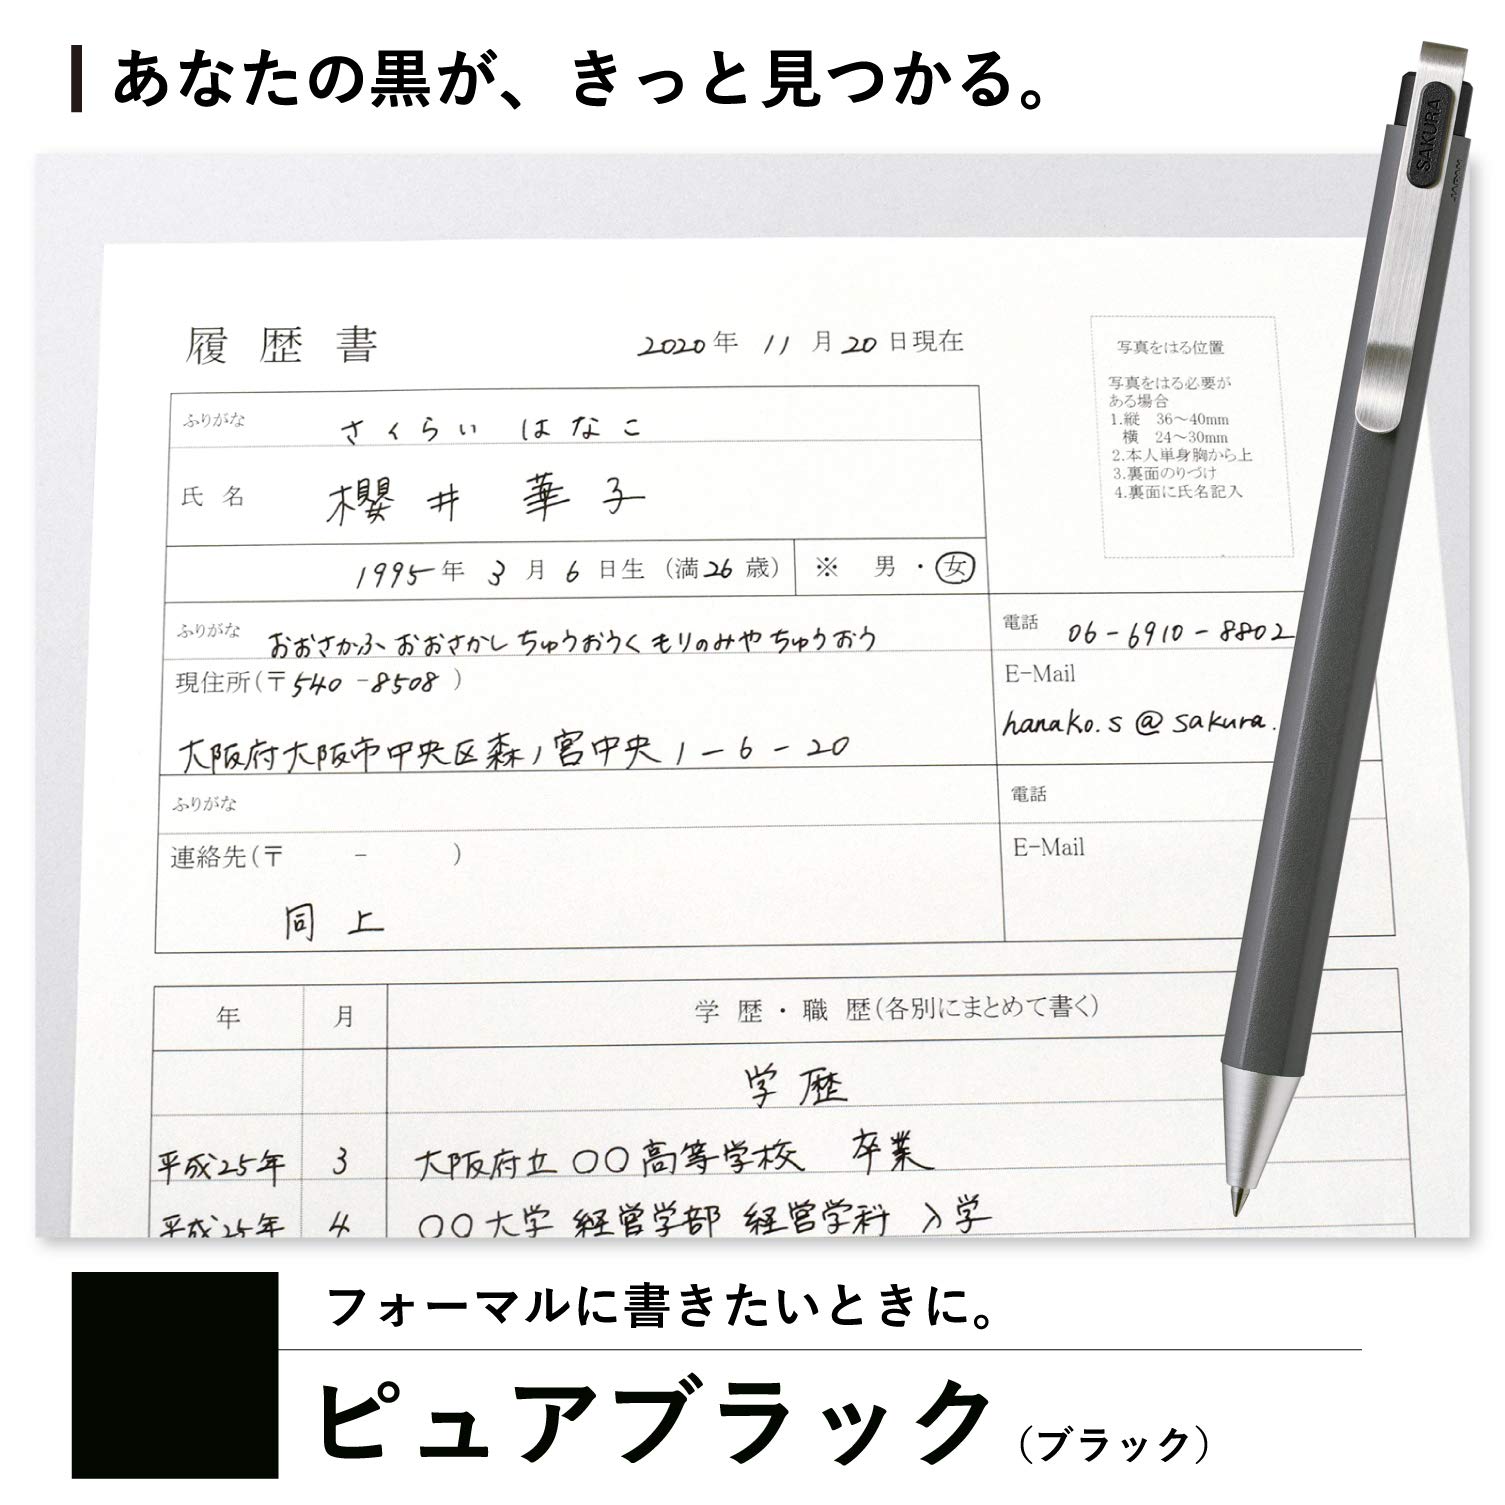 あなたの黒が、きっと見つかる。
SAKURA
履歴書
2020年 11月20日現在
写真をはる位置
写真をはる必要が
ある場合
1.縦 36～40mm
横 24～30mm
2.本人単身胸から上
3.裏面のりづけ
4.裏面に氏名記入
ふりがな さくらい はなこ
氏名 櫻井 華子
1995年 3月 6日生 (満26歳) ※ 男・女
ふりがな おおさかふ おおさかし ちゅうおうく もりのみや ちゅうおう
電話 06-6910-8802
現住所(〒540-8508)
E-Mail
hanako.s@sakura.
大阪府大阪市中央区森ノ宮中央1-6-20
ふりがな
電話
連絡先(〒 - )
E-Mail
同上
年 月 学歴・職歴(各別にまとめて書く)
学歴
平成25年 3 大阪府立〇〇高等学校 卒業
平成25年 4 〇〇大学 経営学部 経営学科 入学
フォーマルに書きたいときに。
ピュアブラック(ブラック)